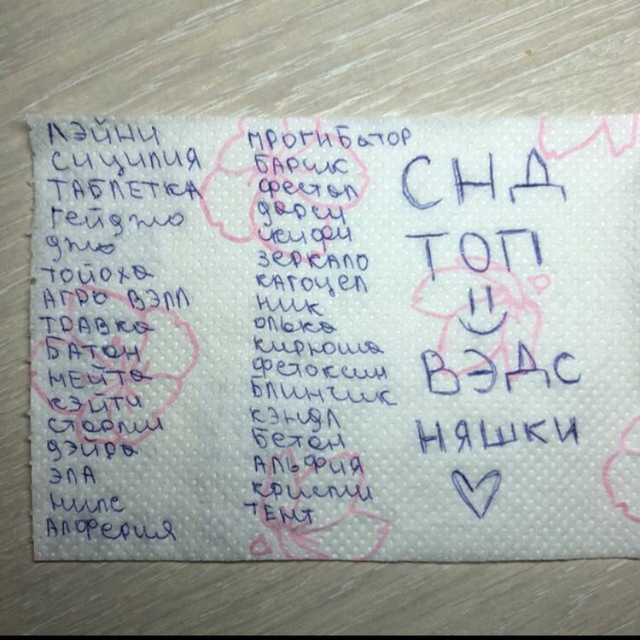 ЛЭЙНИ
СИЦИЛИЯ
ТАБЛЕТКА
гейджло
джо
тойоха
АГРО ВЭЛЛ
ТРАВКА
БАТОН
МЕЙТА
СЭЙТИ
СТОРМИ
дэйра
ЭЛА
НИЛС
АЛФЕРИЯ
ПРОГИБАТОР
БАРСИК
ФЕСТАЛ
ДАРСИ
ЗЕРКАЛО
КАГОЦЕЛ
НИК
ОЛЬКА
КИРЮША
ФЕТОКСИН
БЛИНЧИК
КЭНДЛ
БЕТОН
АЛЬФИЯ
КРИСПИ
ТЕНТ
СНД
ТОП
=)
ВЭДС
НЯШКИ
♡